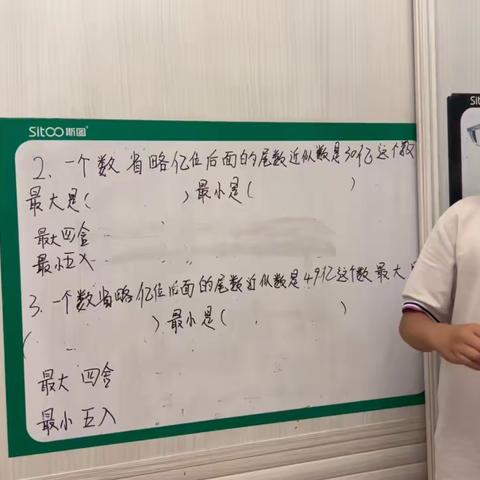 Sitoo 斯图
2、一个数省略亿位后面的尾数近似数是50亿这个数
最大是(　　　)最小是(　　　)
最大四舍
最小五入
3、一个数省略亿位后面的尾数近似数是49亿这个数最大是
(　　　)最小是(　　　)
最大 四舍
最小 五入